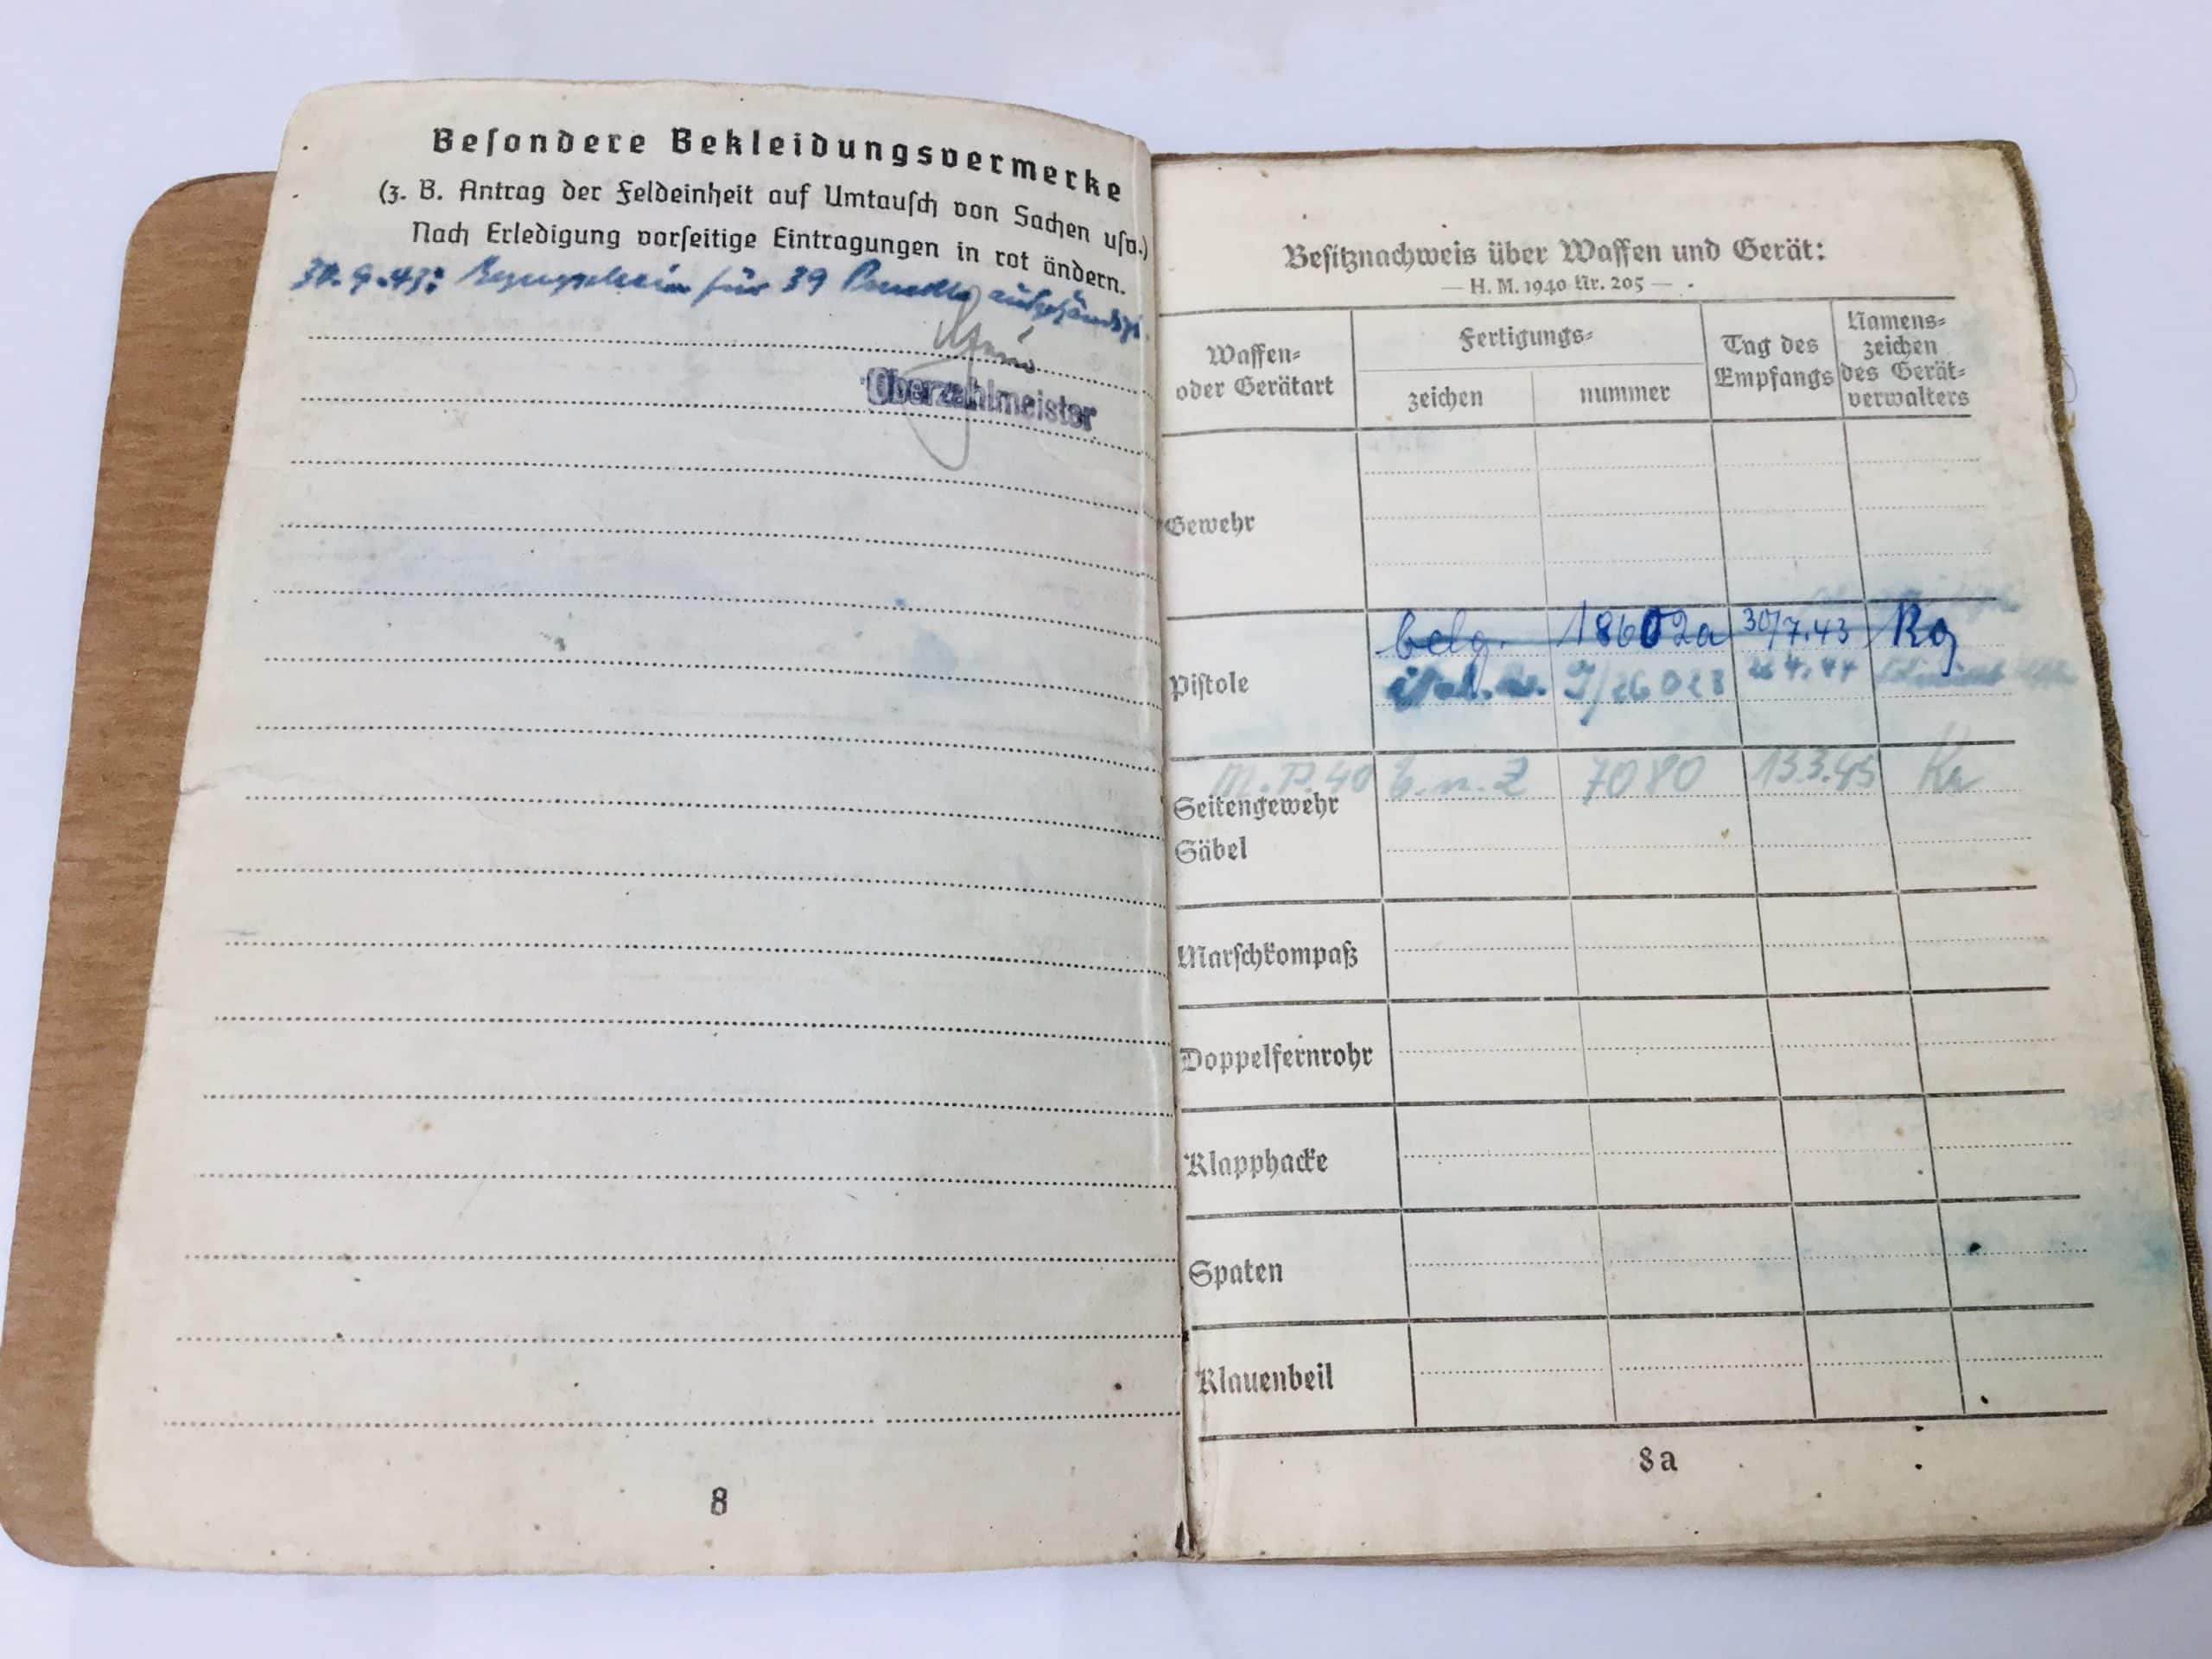 Besondere Bekleidungsvermerke
(z. B. Antrag der Feldeinheit auf Umtausch von Sachen usw.)
Nach Erledigung vorseitige Eintragungen in rot ändern.
30.9.43: für 39
Oberzahlmeister
8
Besitznachweis über Waffen und Gerät:
— H. M. 1940 Nr. 205 —
Waffen-
oder Gerätart
Fertigungs-
zeichen
nummer
Tag des
Empfangs
Namens-
zeichen
des Gerät-
verwalters
Gewehr
Pistole
belg. 18602a 30/7.43
ital. J/26028 4.44
M.P.40 b.n.z 7080 13.3.45 Kr
Seitengewehr
Säbel
Marschkompaß
Doppelfernrohr
Klapphacke
Spaten
Klauenbeil
8a